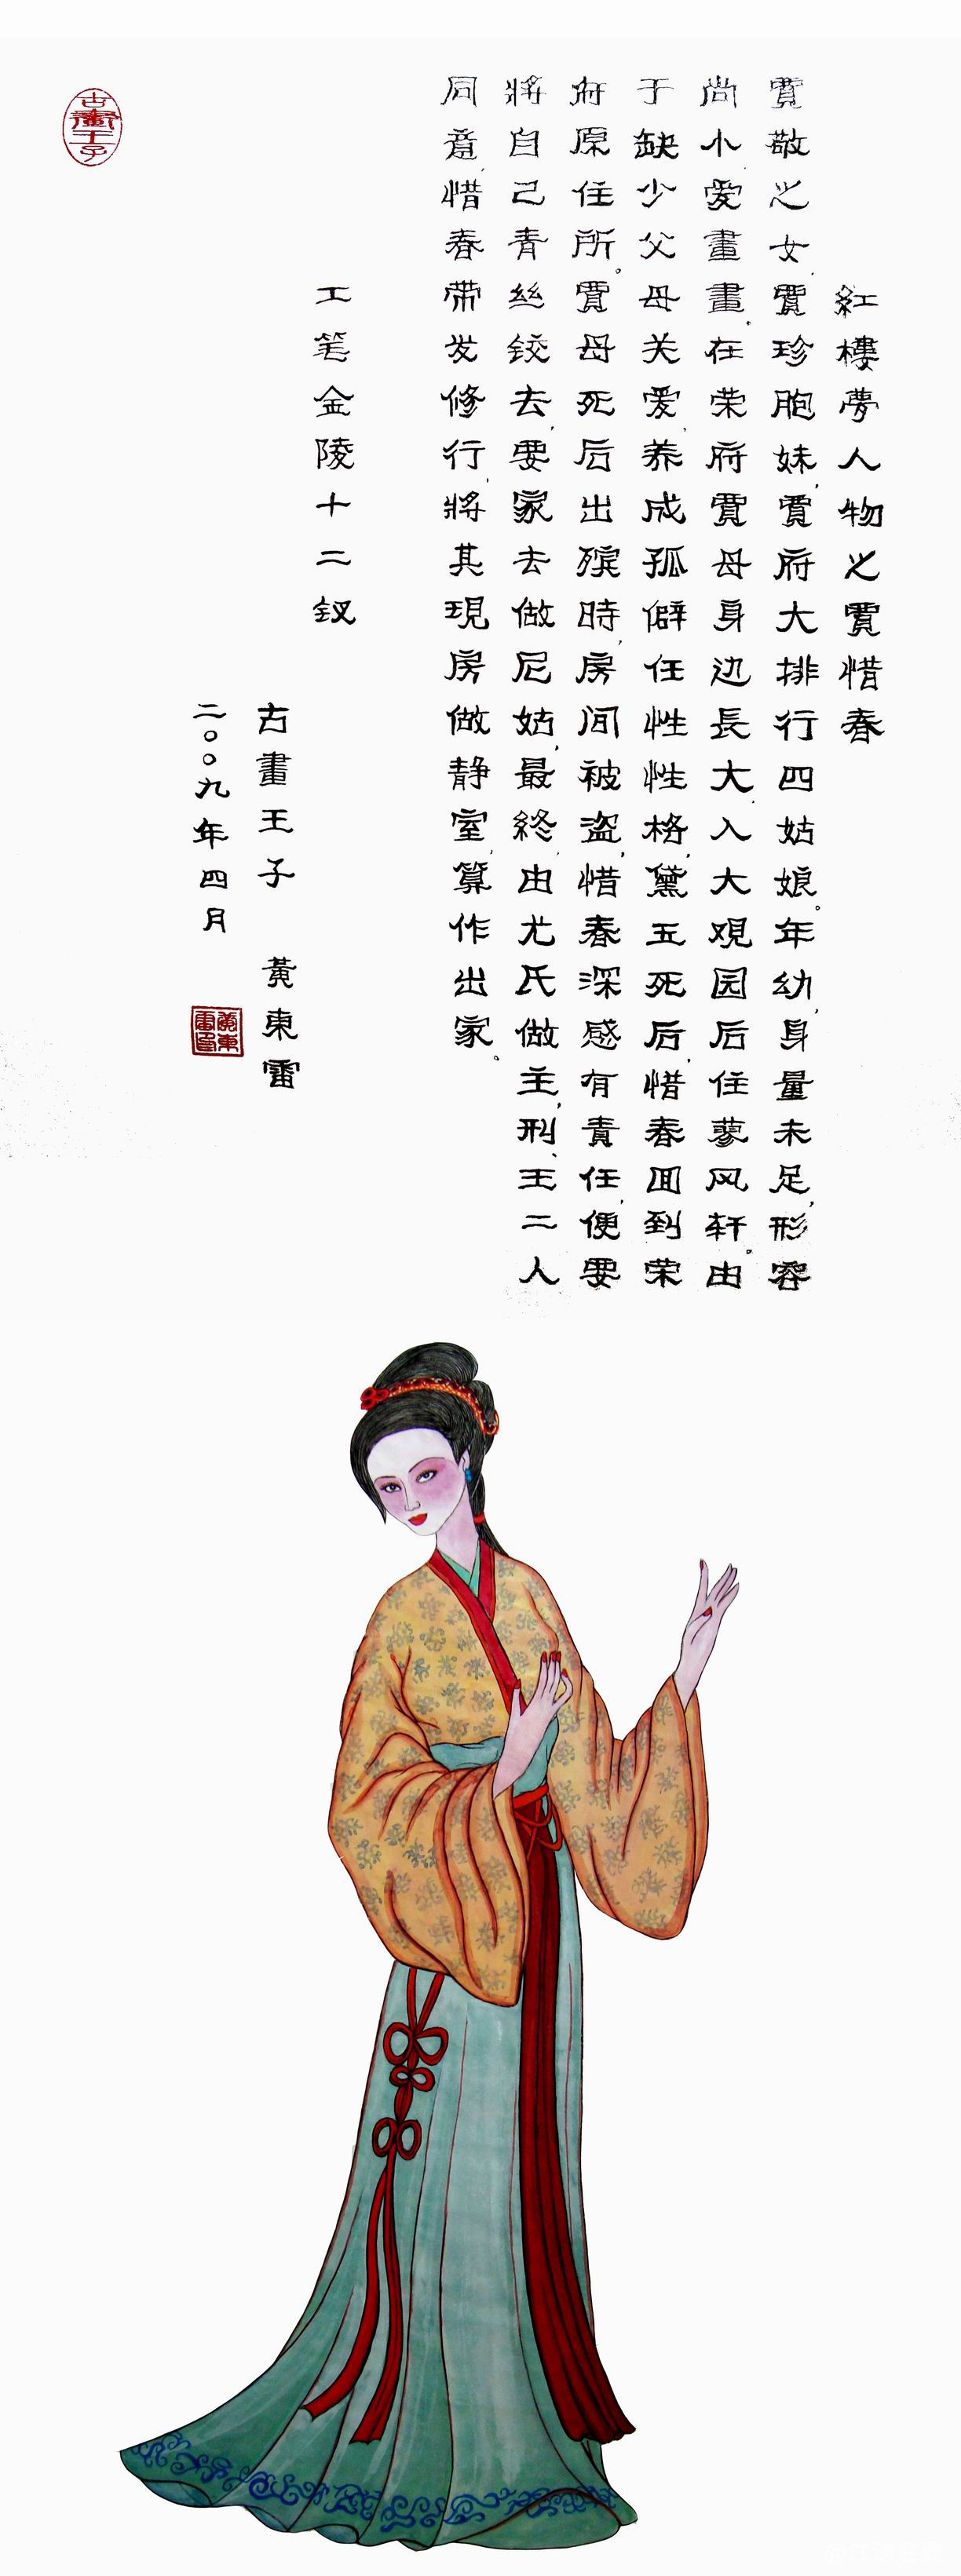 紅樓夢人物之賈惜春
賈敬之女,賈珍胞妹,賈府大排行四姑娘。年幼,身量未足,形容
尚小,爱畫畫。在荣府賈母身边長大,入大观园后住蓼风轩。由
于缺少父母关爱,养成孤僻任性性格,黛玉死后,惜春回到荣
府原住所。賈母死后出殡時,房间被盗,惜春深感有責任,便要
將自己青丝铰去,要家去做尼姑,最終,由尤氏做主,刑、王二人
同意,惜春带发修行,將其現房做静室,算作出家。
工笔金陵十二钗
古畫王子 黃東雷
二〇〇九年四月
古畫王子
黃東雷印